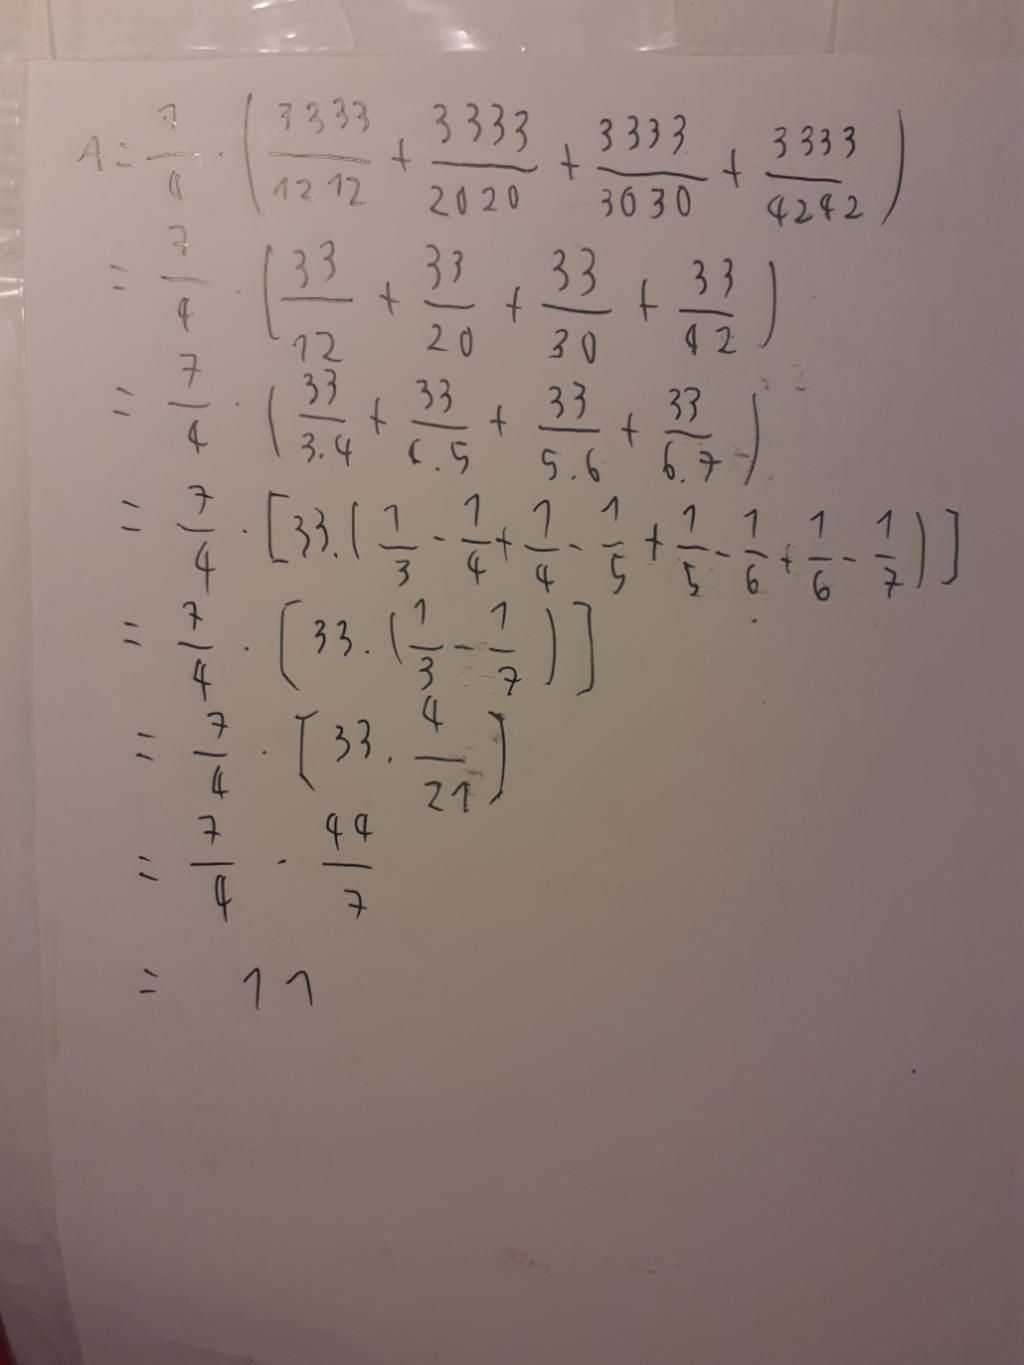 A = 7/4 . ( 3333/1212 + 3333/2020 + 3333/3030 + 3333/4242 )
= 7/4 . ( 33/12 + 33/20 + 33/30 + 33/42 )
= 7/4 . ( 33/3.4 + 33/4.5 + 33/5.6 + 33/6.7 )
= 7/4 . [ 33. ( 1/3 - 1/4 + 1/4 - 1/5 + 1/5 - 1/6 + 1/6 - 1/7 ) ]
= 7/4 . [ 33. ( 1/3 - 1/7 ) ]
= 7/4 . [ 33. 4/21 ]
= 7/4 . 44/7
= 11